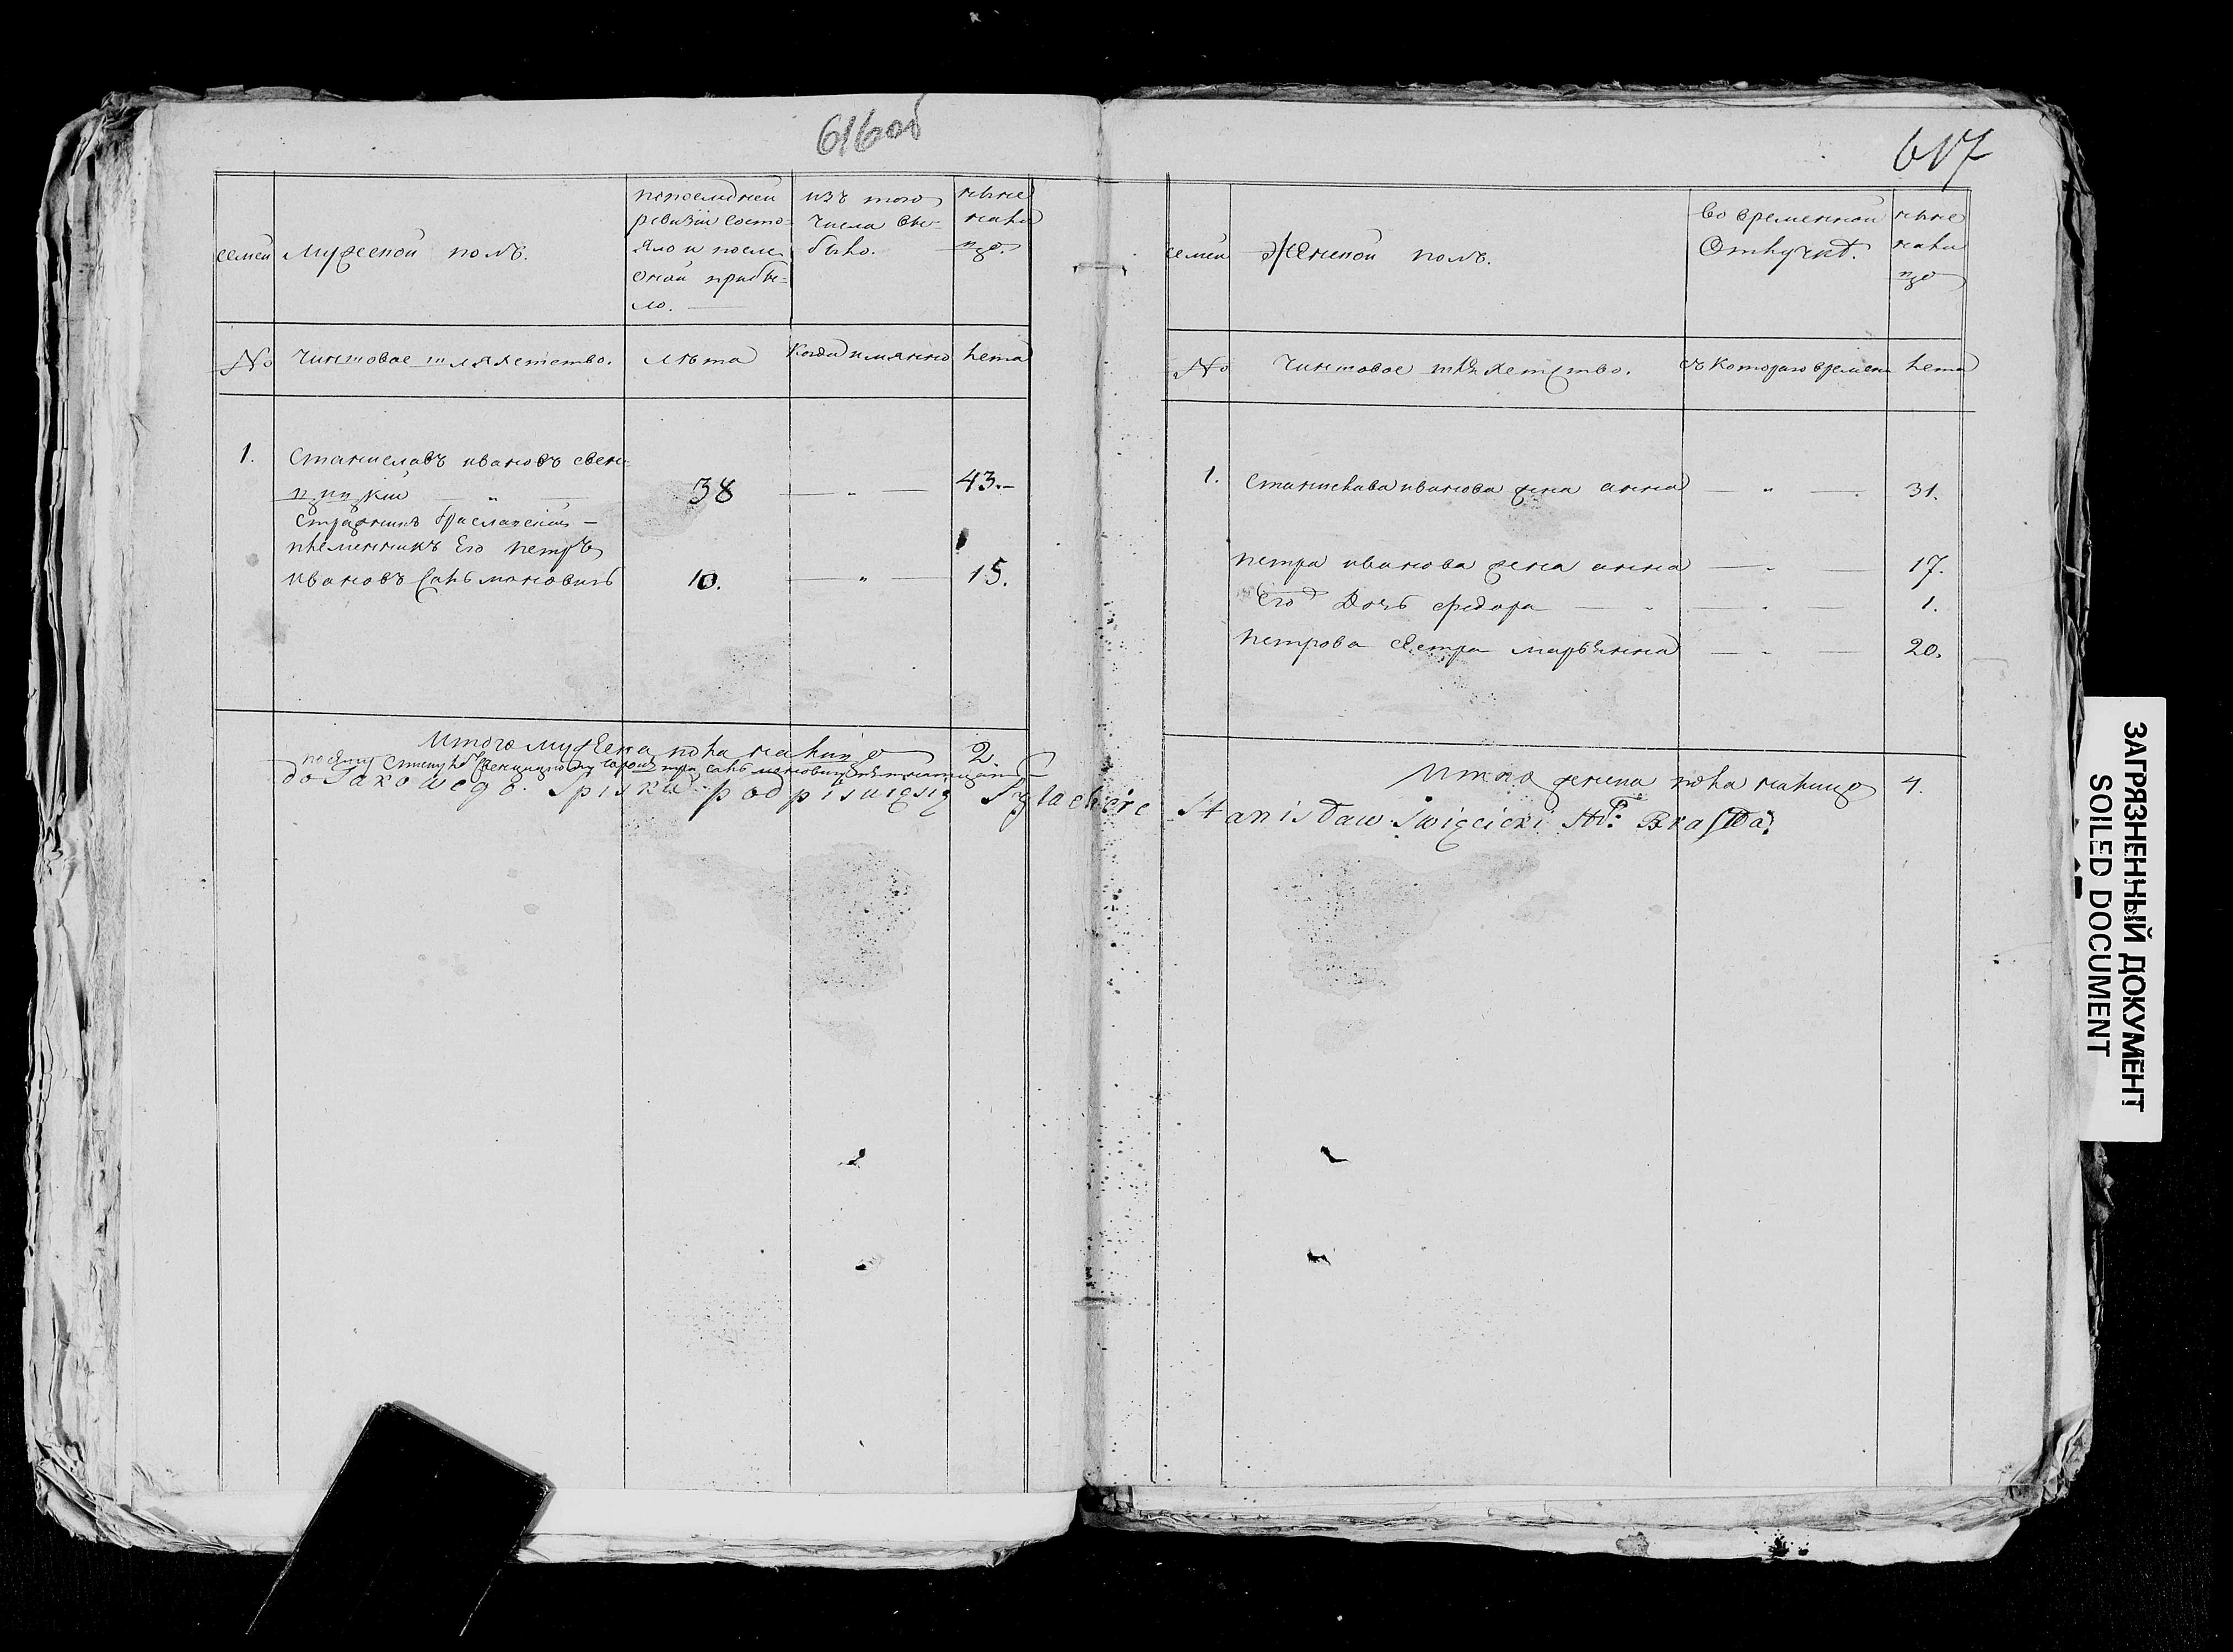 616 об
семьи
Мужеской полъ.
по последней ревизiи состояло и после оной прибыло.
изъ того числа выбыло.
ныне налицо.
№
Чиншовое шляхетство.
лета
когда имянно
лета
1.
Станиславъ ивановъ свен-
цицкiй — „ —
38 — „ — 43.
Стражникъ браславскiй —
племенникъ Его петръ
ивановъ
10. — „ — 15.
Итого мужеска пола налицо 2.
do Takowego Spisku podpisuięsię Szlachcic Stanisław Swięcicki Str: Brasła:
617
семьи
Женской полъ.
во временной Отлучке.
ныне налицо
№
Чиншовое шляхетство.
съ котораго времени
лета
1.
Станислава иванова жена анна — „ — 31.
петра иванова жена анна — „ — 17.
Его Дочь федора — „ — 1.
петрова Сестра марьянна — „ — 20.
Итого женска пола налицо 4.
ЗАГРЯЗНЕННЫЙ ДОКУМЕНТ
SOILED DOCUMENT